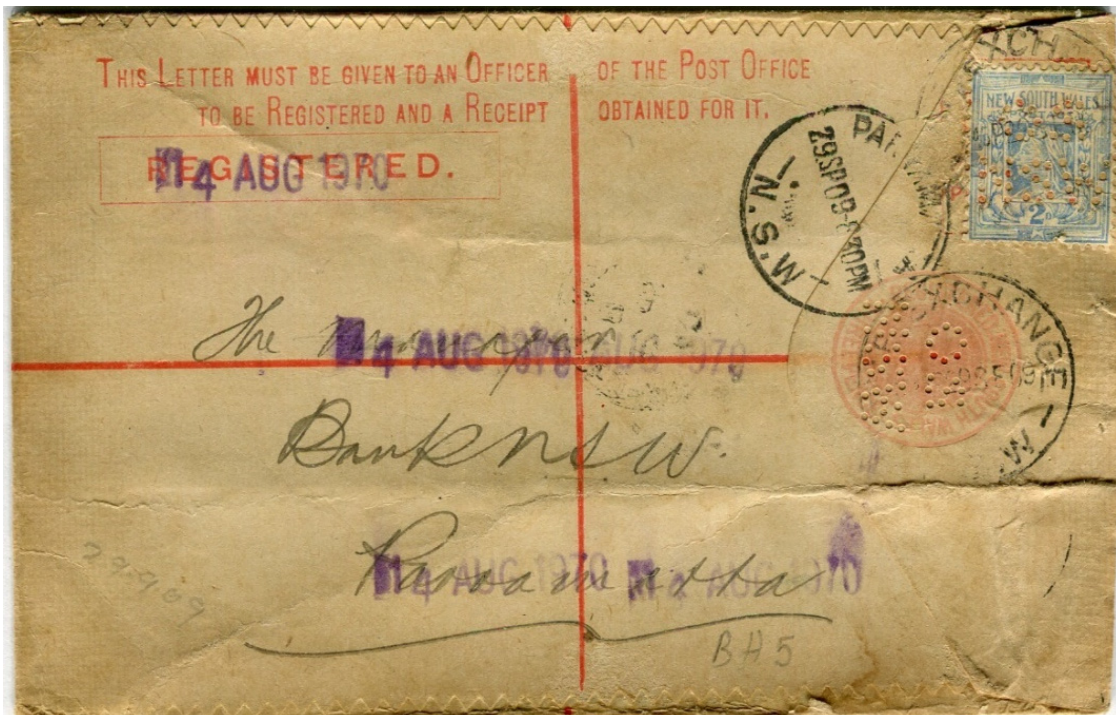 THIS LETTER MUST BE GIVEN TO AN OFFICER OF THE POST OFFICE
TO BE REGISTERED AND A RECEIPT OBTAINED FOR IT.
REGISTERED.
4 AUG 1970
EXCH
NEW SOUTH WALES
2D
PAR
29SP09
30PM
N.S.W
The Manager
4 AUG 1970 AUG 1970
EXCHANGE
W
Bank NSW.
Parramatta
4 AUG 1970 4 AUG 1970
29.9.09
BH5